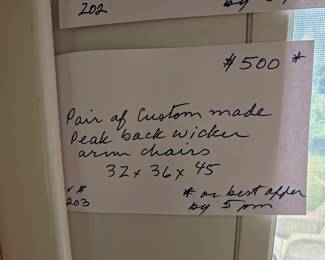 202
by 5
$500 *
Pair of Custom made
Peak back wicker
arm chairs
32 x 36 x 45
v #
203
* or best offer
by 5 pm